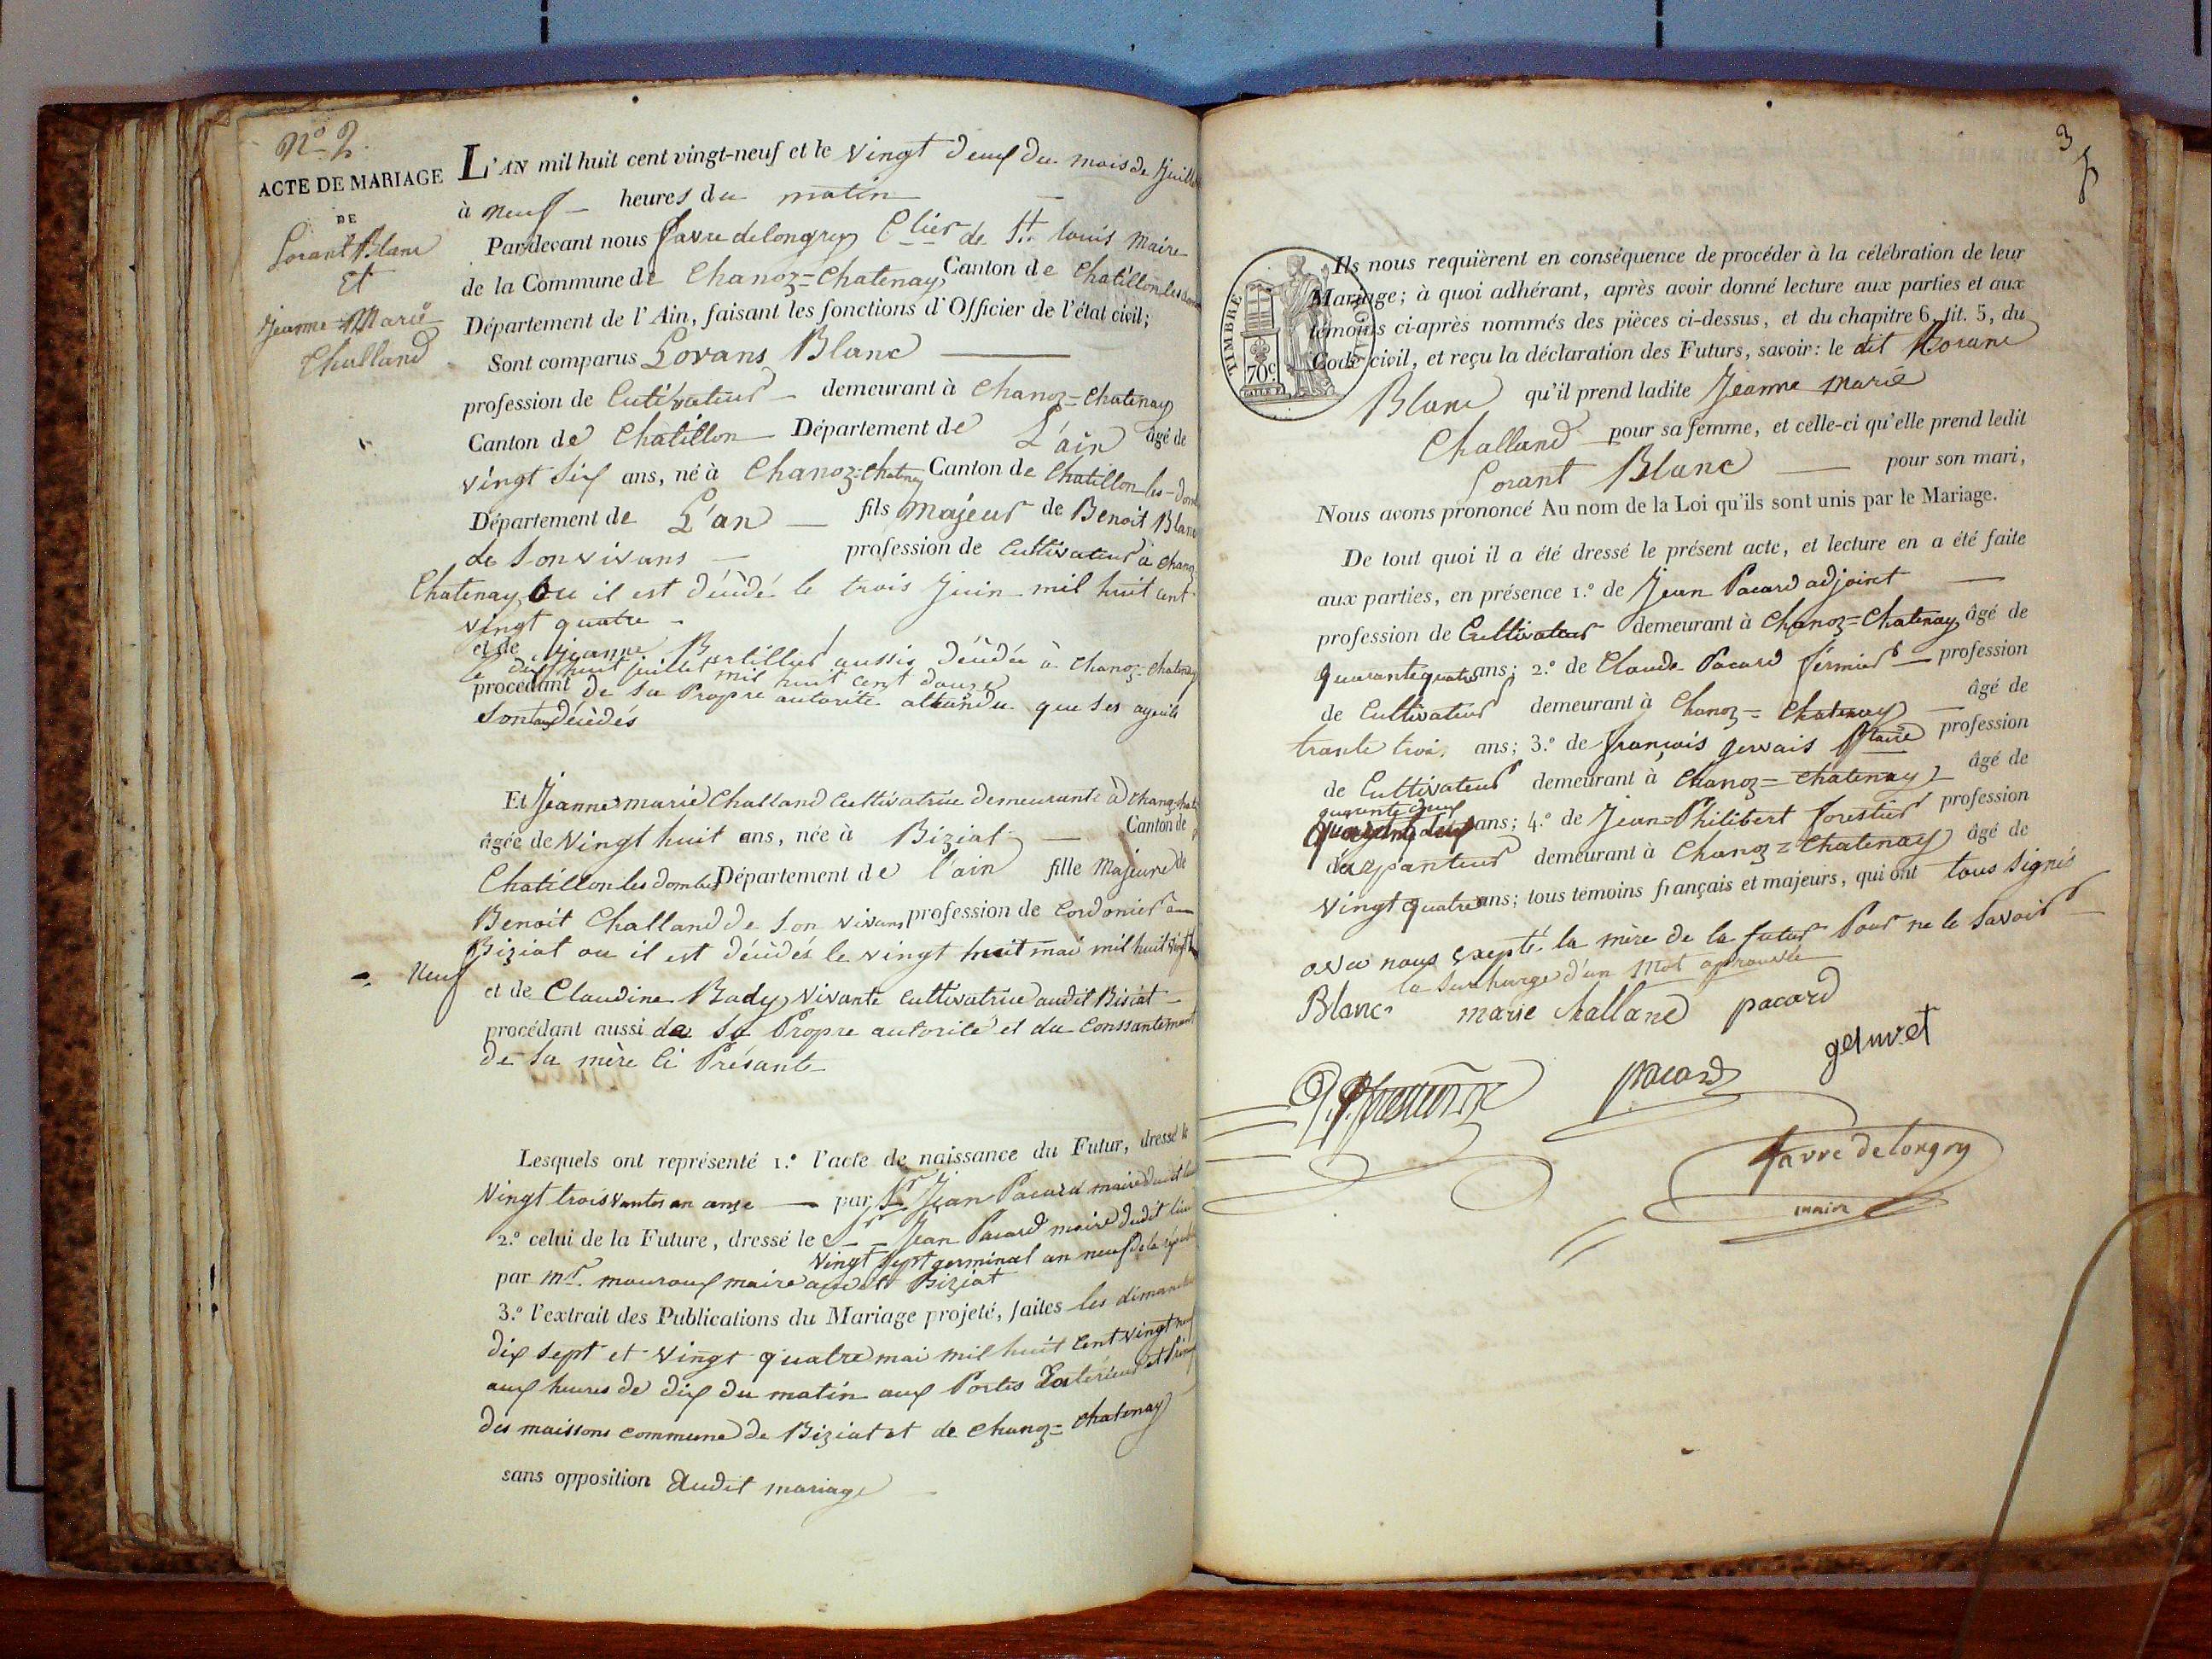 N.o 2.
ACTE DE MARIAGE
DE
Lorant Blanc
Et
Jeanne Marie
Challand
L'AN mil huit cent vingt-neuf et le vingt deux du mois de Juillet
à neuf heures du matin
Pardevant nous favre delongry C lier de St. Louis Maire
de la Commune de Chanoz=Chatenay Canton de Chatillon les
Département de l'Ain, faisant les fonctions d'Officier de l'état civil;
Sont comparus Lorans Blanc
profession de Cutivateur demeurant à Chanoz=Chatenay
Canton de Chatillon Département de L'ain âgé de
vingt Six ans, né à Chanoz-Chatnay Canton de Chatillon-les-
Département de L'an fils majeur de Benoit Blanc
de Son vivans profession de Cultivateur à Chanoz
Chatenay Ou il est décédé le trois Juin mil huit cent
vingt quatre
et de Jeanne aussis décédée à Chanoz-Chatenay
le dix huit juillet mil huit cent douze
procédant de sa Propre autorité attandu que Ses ayeuls
Sont décédés
Et Jeanne marie Challand Cultivatrice demeurante à Chanoz
âgée de Vingt huit ans, née à Biziat Canton de
Chatillon les dombes Département de l'ain fille Majeure de
Benoit Challand de Son vivans profession de Cordonier a
Biziat ou il est décédés le vingt huit mai mil huit vingt
Neuf
et de Claudine Bady vivante Cultivatrice audit Bisiat
procédant aussi de Sa Propre autorité et du Conssantement
de Sa mère Ci Présante
Lesquels ont représenté 1.o l'acte de naissance du Futur, dressé le
Vingt trois ventos an onze par Sr Jean Pacard maire dudit lieu
2.o celui de la Future, dressé le Sr Jean Pacard maire dudit lieu
Vingt Sept germinal an neuf de la
par mr. mouroux maire audit Biziat
3.o l'extrait des Publications du Mariage projeté, faites les dimanches
dix Sept et Vingt quatre mai mil huit Cent vingt neuf
aux heures de dix du matin aux Portes Exterieur et
des maissons commune de Biziat et de Chanoz=Chatenay
sans opposition Audit mariage
3
TIMBRE ROYAL
70c
Ils nous requièrent en conséquence de procéder à la célébration de leur
Mariage; à quoi adhérant, après avoir donné lecture aux parties et aux
témoins ci-après nommés des pièces ci-dessus, et du chapitre 6, tit. 5, du
Code civil, et reçu la déclaration des Futurs, savoir: le dit Lorant
Blanc qu'il prend ladite Jeanne Marie
Challand pour sa femme, et celle-ci qu'elle prend ledit
Lorant Blanc pour son mari,
Nous avons prononcé Au nom de la Loi qu'ils sont unis par le Mariage.
De tout quoi il a été dressé le présent acte, et lecture en a été faite
aux parties, en présence 1.o de Jean Pacard adjoint
profession de Cultivateur demeurant à Chanoz=Chatenay âgé de
quarante quatre ans; 2.o de Claude Pacard fermier profession
de Cultivateur demeurant à Chanoz=Chatenay âgé de
trante trois ans; 3.o de françois gervais profession
de Cultivateur demeurant à Chanoz=Chatenay âgé de
quarante deux
ans; 4.o de Jean=Philibert forestier profession
demeurant à Chanoz=Chatenay âgé de
Vingt quatre ans; tous témoins français et majeurs, qui ont tous Signés
avec nous Exepté la mère de la futur Pour ne le Savoir
la Surcharge d'un Mot aprouvée
Blanc marie challand pacard
pacard
favre delongry
maire